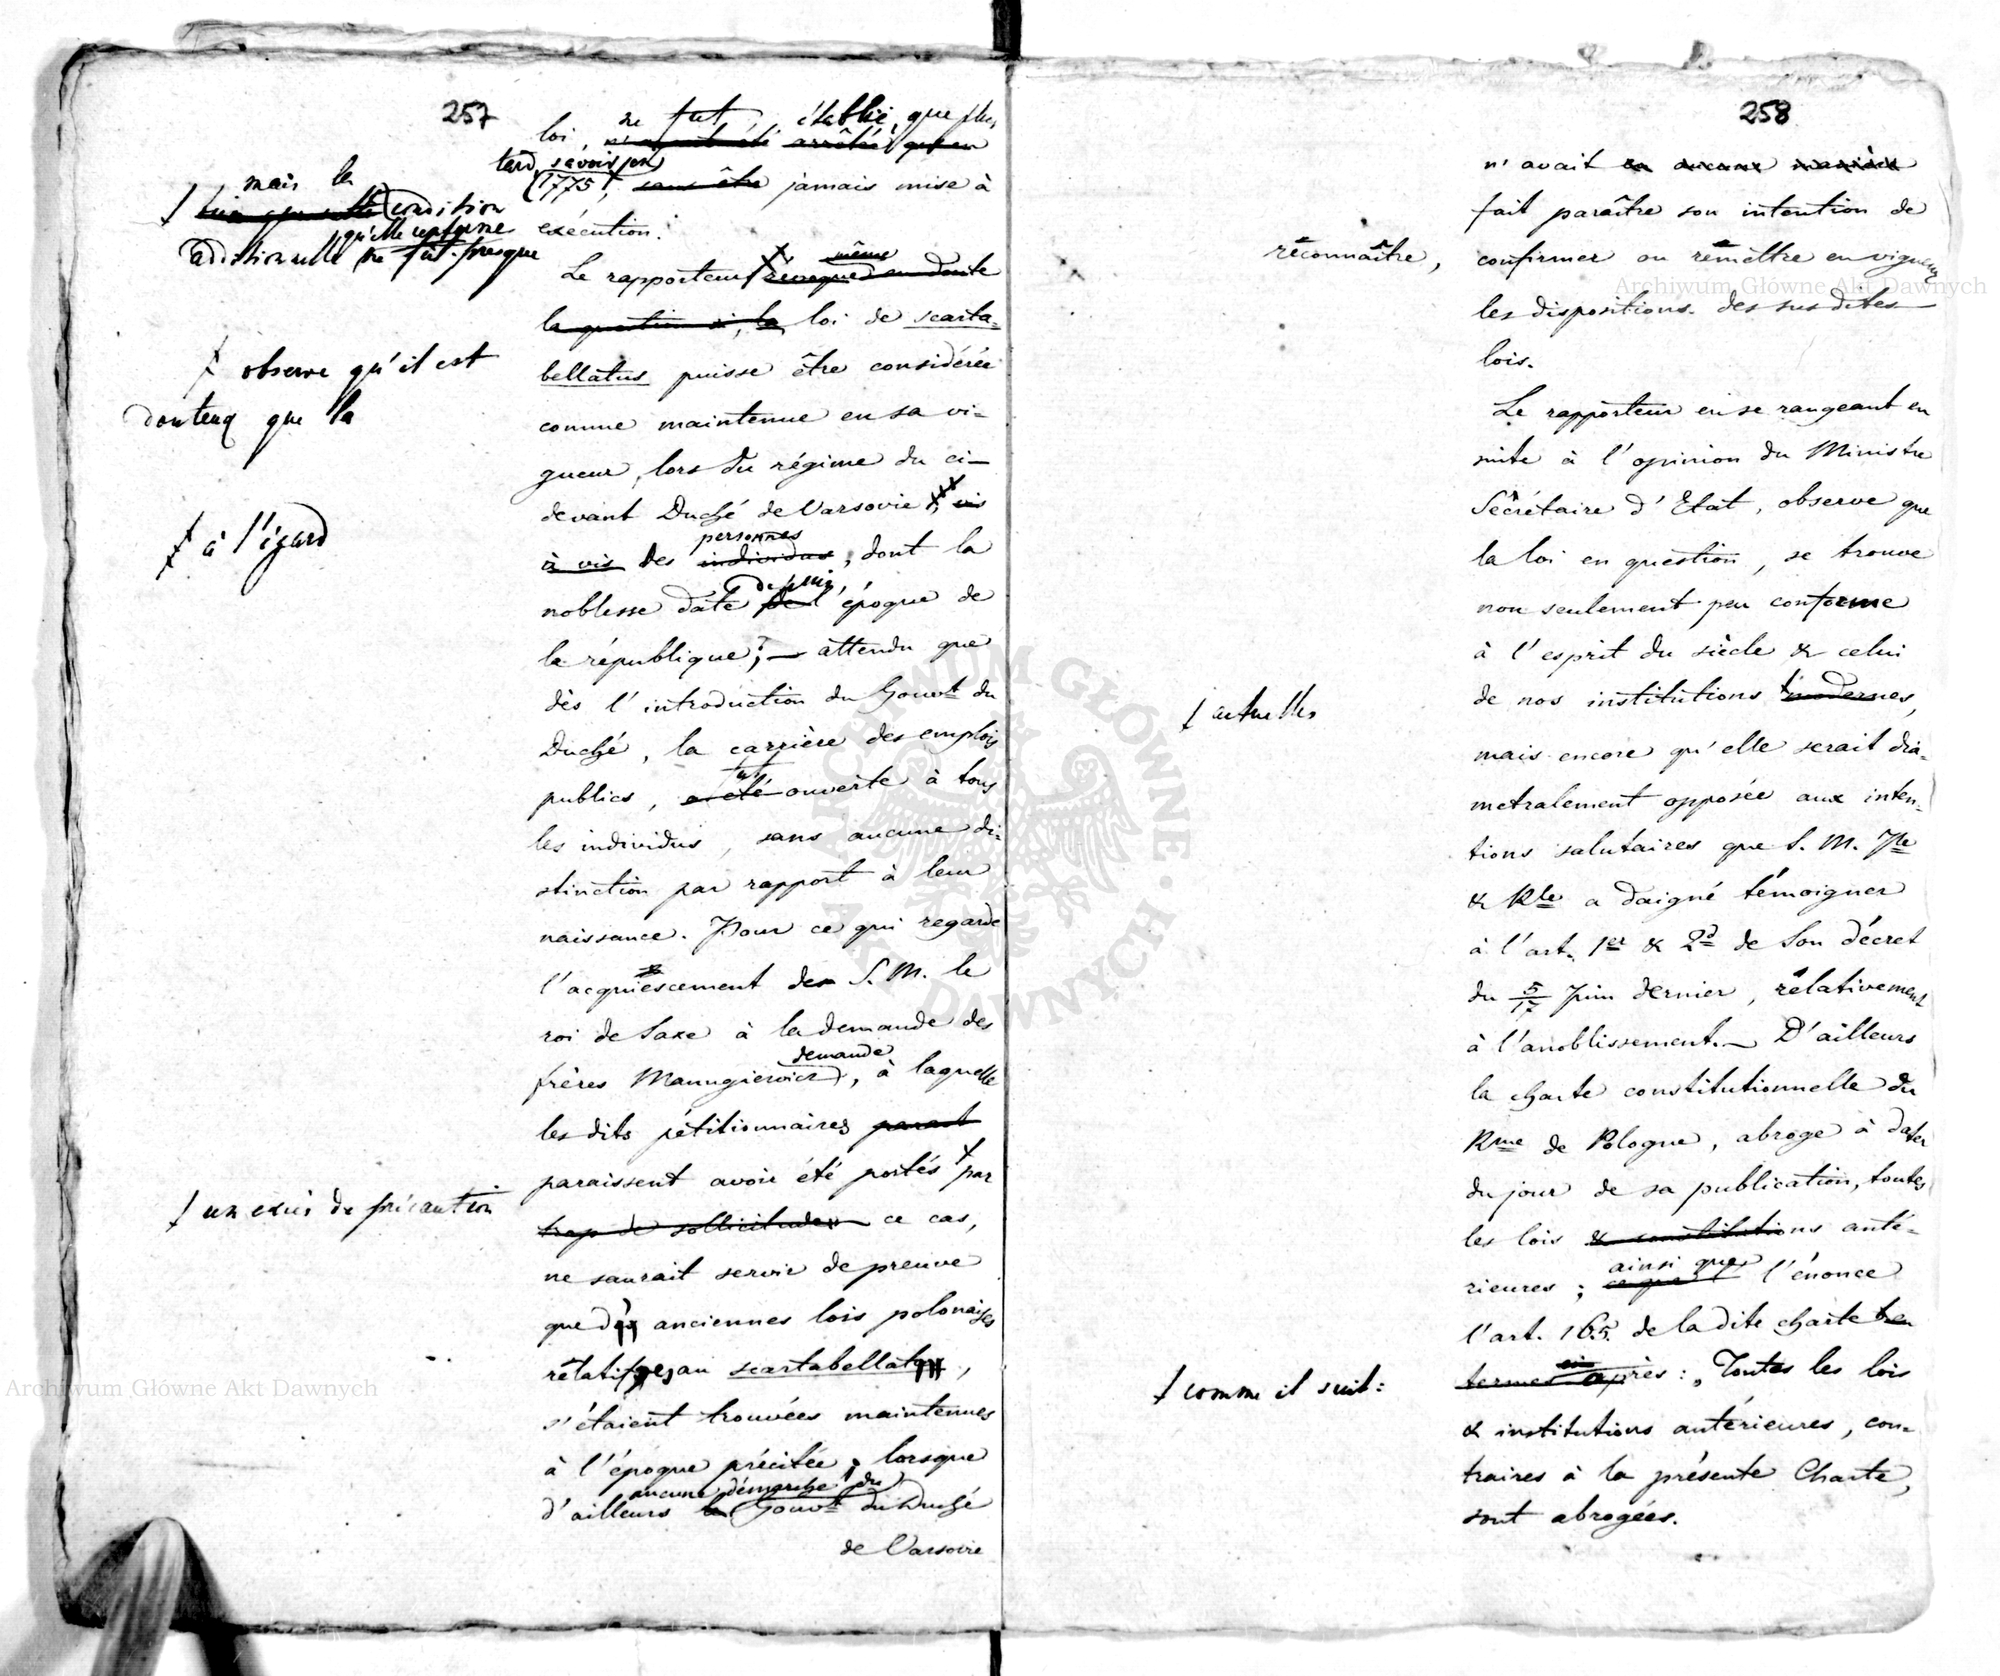 257
loi, ne fut, établie, que plus
n'ayant été arrêtée qu'en
tard, savoir, en
(1775), sans être jamais mise à
exécution.
mais la
bien que cette condition
qu'elle renferme
additionnelle ne fût presque
Le rapporteur révoque même en doute
la question si, la loi de scarta-
bellatus puisse être considérée
comme maintenue en sa vi-
gueur, lors du régime du ci-
devant Duché de Varsovie, vis
à vis des individus, dont la
personnes
noblesse date de l'époque de
depuis
la république; — attendu que
dès l'introduction du Gouvt du
Duché, la carrière des emplois
fut
publics, a été ouverte à tous
les individus, sans aucune di-
stinction par rapport à leur
naissance. Pour ce qui regarde
l'acquiescement de S. M. le
roi de Saxe à la demande des
frères Manugiewicz, à laquelle
demande
les dits pétitionnaires parait
paraissent avoir été portés par
trop de sollicitude ce cas,
ne saurait servir de preuve
que d'anciennes lois polonaises
rélatives au scartabellat,
s'étaient trouvées maintenues
à l'époque précitée, lorsque
aucune démarche du
d'ailleurs le Gouvt du Duché
de Varsovie
observe qu'il est
douteux que la
à l'égard
un excès de précaution
258
n'avait en aucune manière
fait paraître son intention de
réconnaître,
confirmer ou rémettre en vigueur
les dispositions des susdites
lois.
Le rapporteur en se rangeant en
suite à l'opinion du Ministre
Sécrétaire d'Etat, observe que
la loi en question, se trouve
non seulement peu conforme
à l'esprit du siècle & celui
de nos institutions modernes,
actuelles
mais encore qu'elle serait dia-
metralement opposée aux inten-
tions salutaires que S. M. Jle
& Rle a daigné témoigner
à l'art. 1er & 2d de Son décret
du 5/17 Juin dernier, rélativement
à l'anoblissement. — D'ailleurs
la charte constitutionnelle du
Rme de Pologne, abroge à dater
du jour de sa publication, toutes
les lois & constitutions anté-
rieures; ainsi que l'énonce
l'art. 165. de la dite charte en
termes ci après: „Toutes les lois
comme il suit:
& institutions antérieures, con-
traires à la présente Charte,
sont abrogées.
Archiwum Główne Akt Dawnych
Archiwum Główne Akt Dawnych
ARCHIWUM GŁÓWNE AKT DAWNYCH